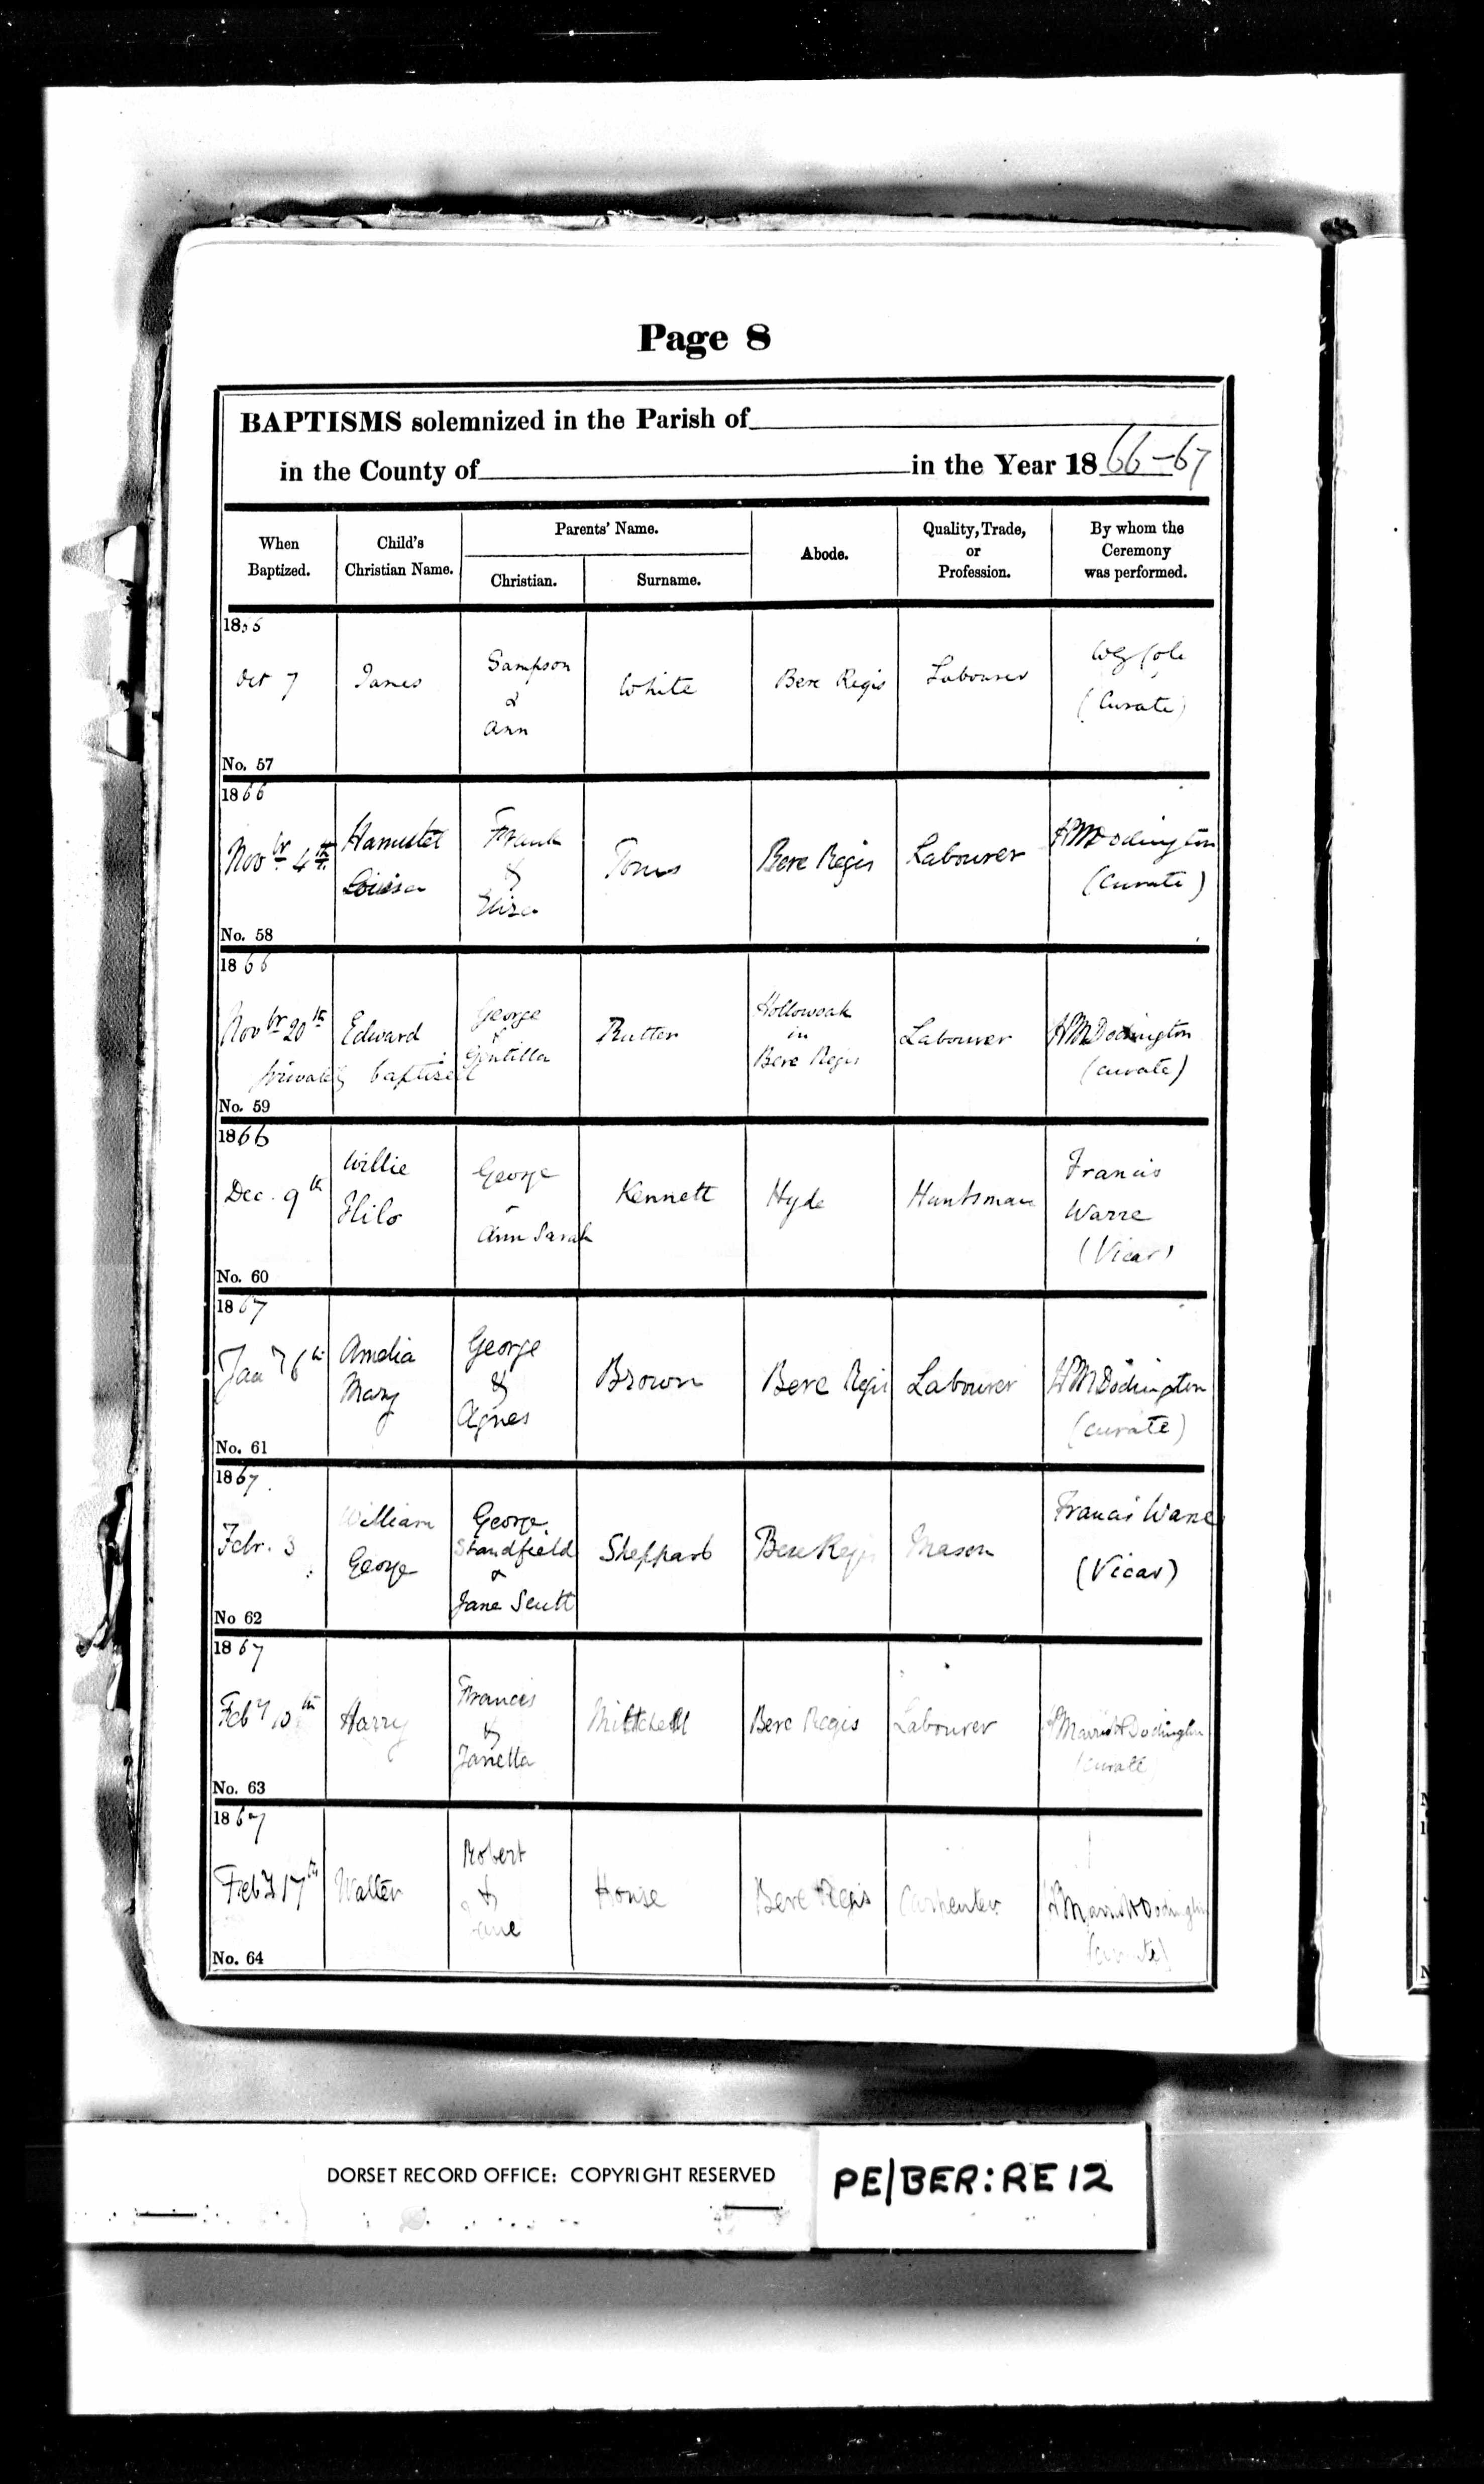 Page 8
BAPTISMS solemnized in the Parish of
in the County of in the Year 1866-67
When Baptized.
Child's Christian Name.
Parents' Name.
Christian.
Surname.
Abode.
Quality, Trade, or Profession.
By whom the Ceremony was performed.
1866
Oct 7
James
Sampson
&
Ann
White
Bere Regis
Labourer
(Curate)
No. 57
1866
Novbr 4th
Louisa
Frank
&
Eliza
Bere Regis
Labourer
HMDodington
(Curate)
No. 58
1866
Novbr 20th
privately baptised
Edward
George
&
Gentilla
Rutter
Hollowoak
in
Bere Regis
Labourer
HMDodington
(curate)
No. 59
1866
Dec. 9th
Willie
George
Ann Sarah
Kennett
Hyde
Huntsman
Francis
Warre
(Vicar)
No. 60
1867
Jany 6th
Amelia
Mary
George
&
Agnes
Brown
Bere Regis
Labourer
HMDodington
(curate)
No. 61
1867.
Febr. 3
William
George
George
Standfield
&
Jane Scutt
Sheppard
Bere Regis
Mason
Francis Warre
(Vicar)
No 62
1867
Feby 10th
Harry
Francis
&
Janetta
Mittchell
Bere Regis
Labourer
Dodington
(curate)
No. 63
1867
Feby 17th
Walter
Robert
&
Jane
House
Bere Regis
Carpenter
Dodington
(curate)
No. 64
DORSET RECORD OFFICE: COPYRIGHT RESERVED
PE/BER:RE12